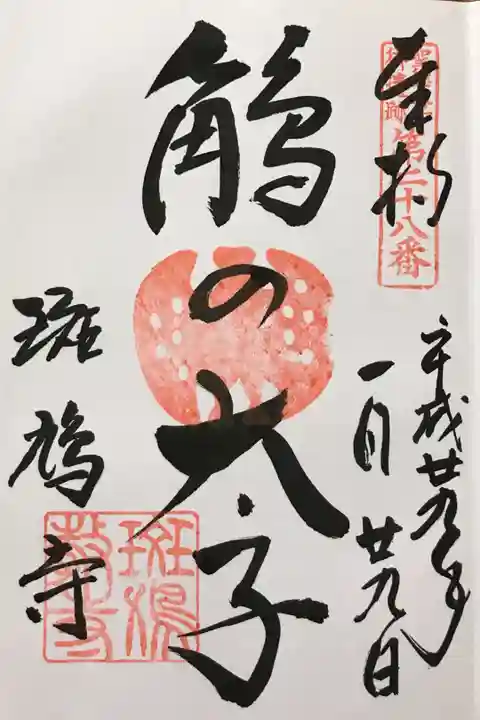 奉拝
聖徳太子
御遺跡
第二十八番
平成廿九年
一月廿九日
鵤の太子
斑鳩寺